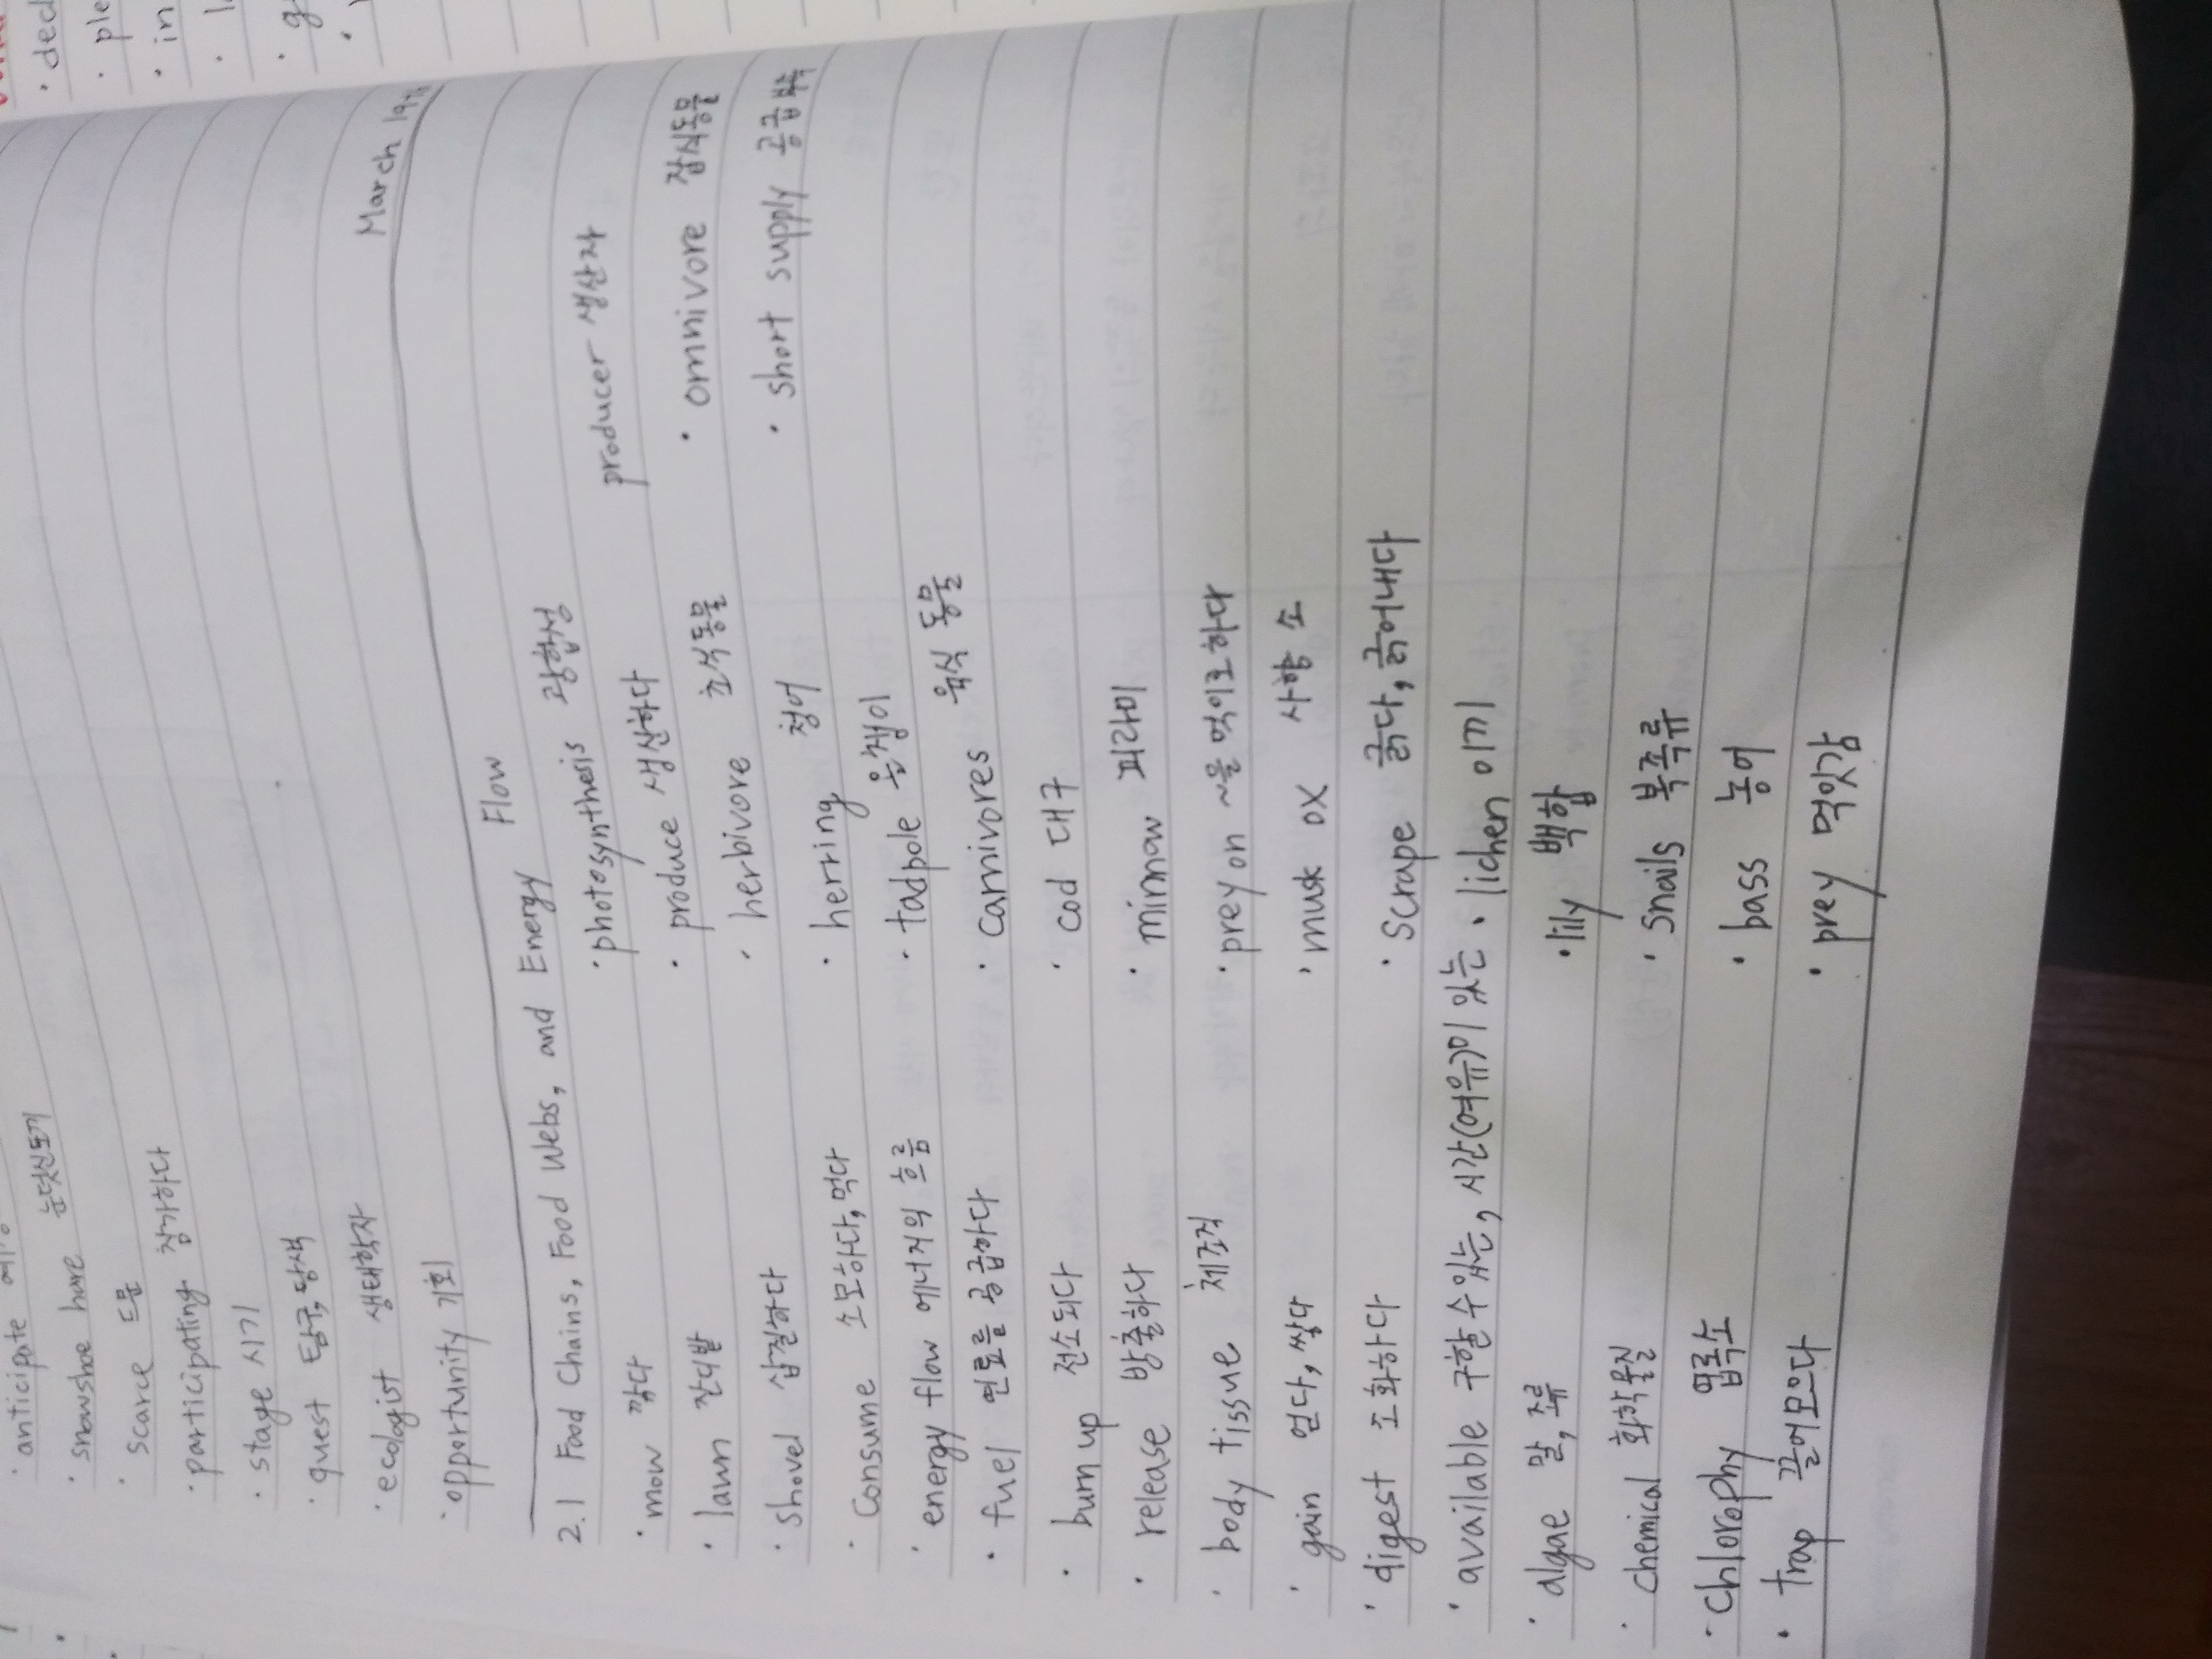 · ded
· ple
· in
· anticipate
· snowshoe hare 눈덧신토끼
· scarce 드문
· participating 참가하다
· stage 시기
· quest 탐구, 탐색
· ecologist 생태학자
· opportunity 기회
March 19th
2.1 Food Chains, Food Webs, and Energy Flow
· mow 깎다 · photosynthesis 광합성
· lawn 잔디밭 · produce 생산하다 producer 생산자
· shovel 삽질하다 · herbivore 초식동물 · omnivore 잡식동물
· consume 소모하다, 먹다 · herring 청어 · short supply 공급부족
· energy flow 에너지의 흐름 · tadpole 올챙이
· fuel 연료를 공급하다 · carnivores 육식 동물
· burn up 전소되다 · cod 대구
· release 방출하다 · minnow 피라미
· body tissue 체조직 · prey on ~을 먹이로 하다
· gain 얻다, 쌓다 · musk ox 사향 소
· digest 소화하다 · scrape 긁다, 긁어내다
· available 구할 수 있는, 시간(여유)이 있는 · lichen 이끼
· algae 말, 조류 · lily 백합
· chemical 화학물질 · snails 복족류
· chlorophy 엽록소 · bass 농어
· trap 끌어모으다 · prey 먹잇감